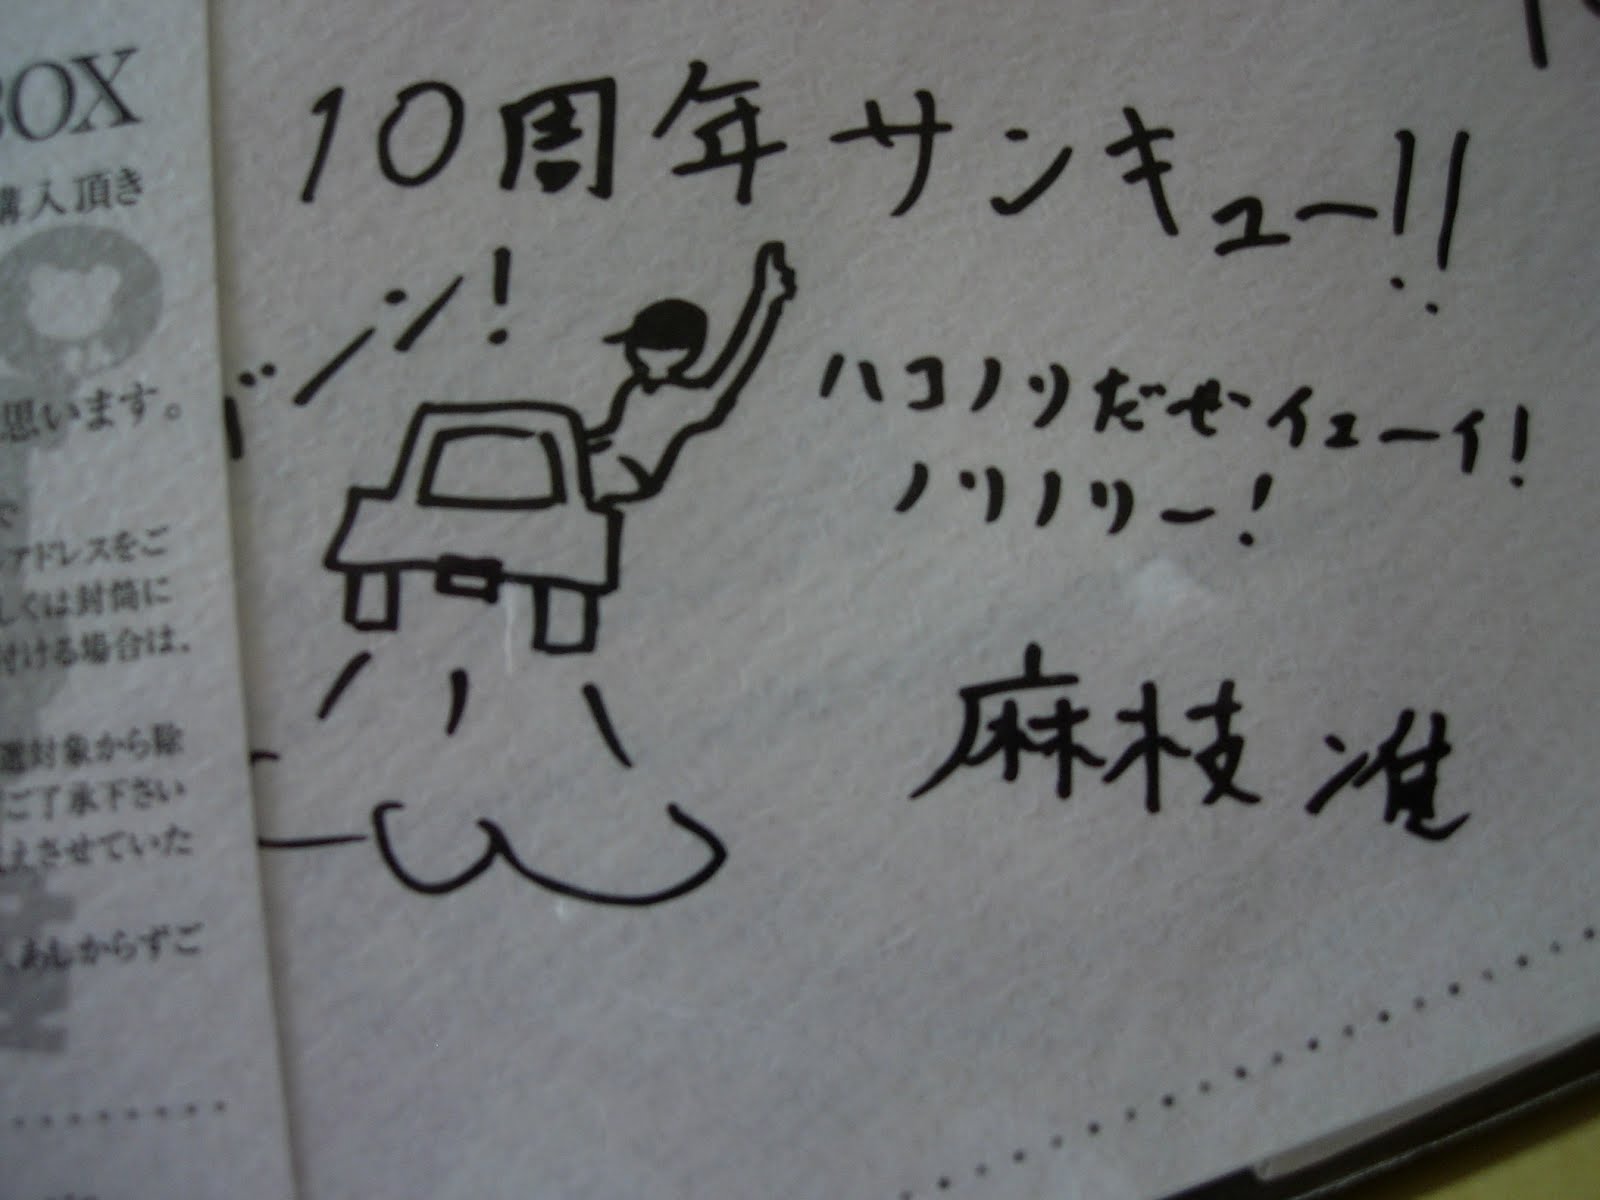 BOX
購入頂き
思います。
アドレスをご
しくは封筒に
付ける場合は、
選対象から除
ご了承下さい
えさせていた
、あしからずご
10周年サンキュー!!
ン!
ハコノリだぜイェーイ!
ノリノリー!
麻枝准